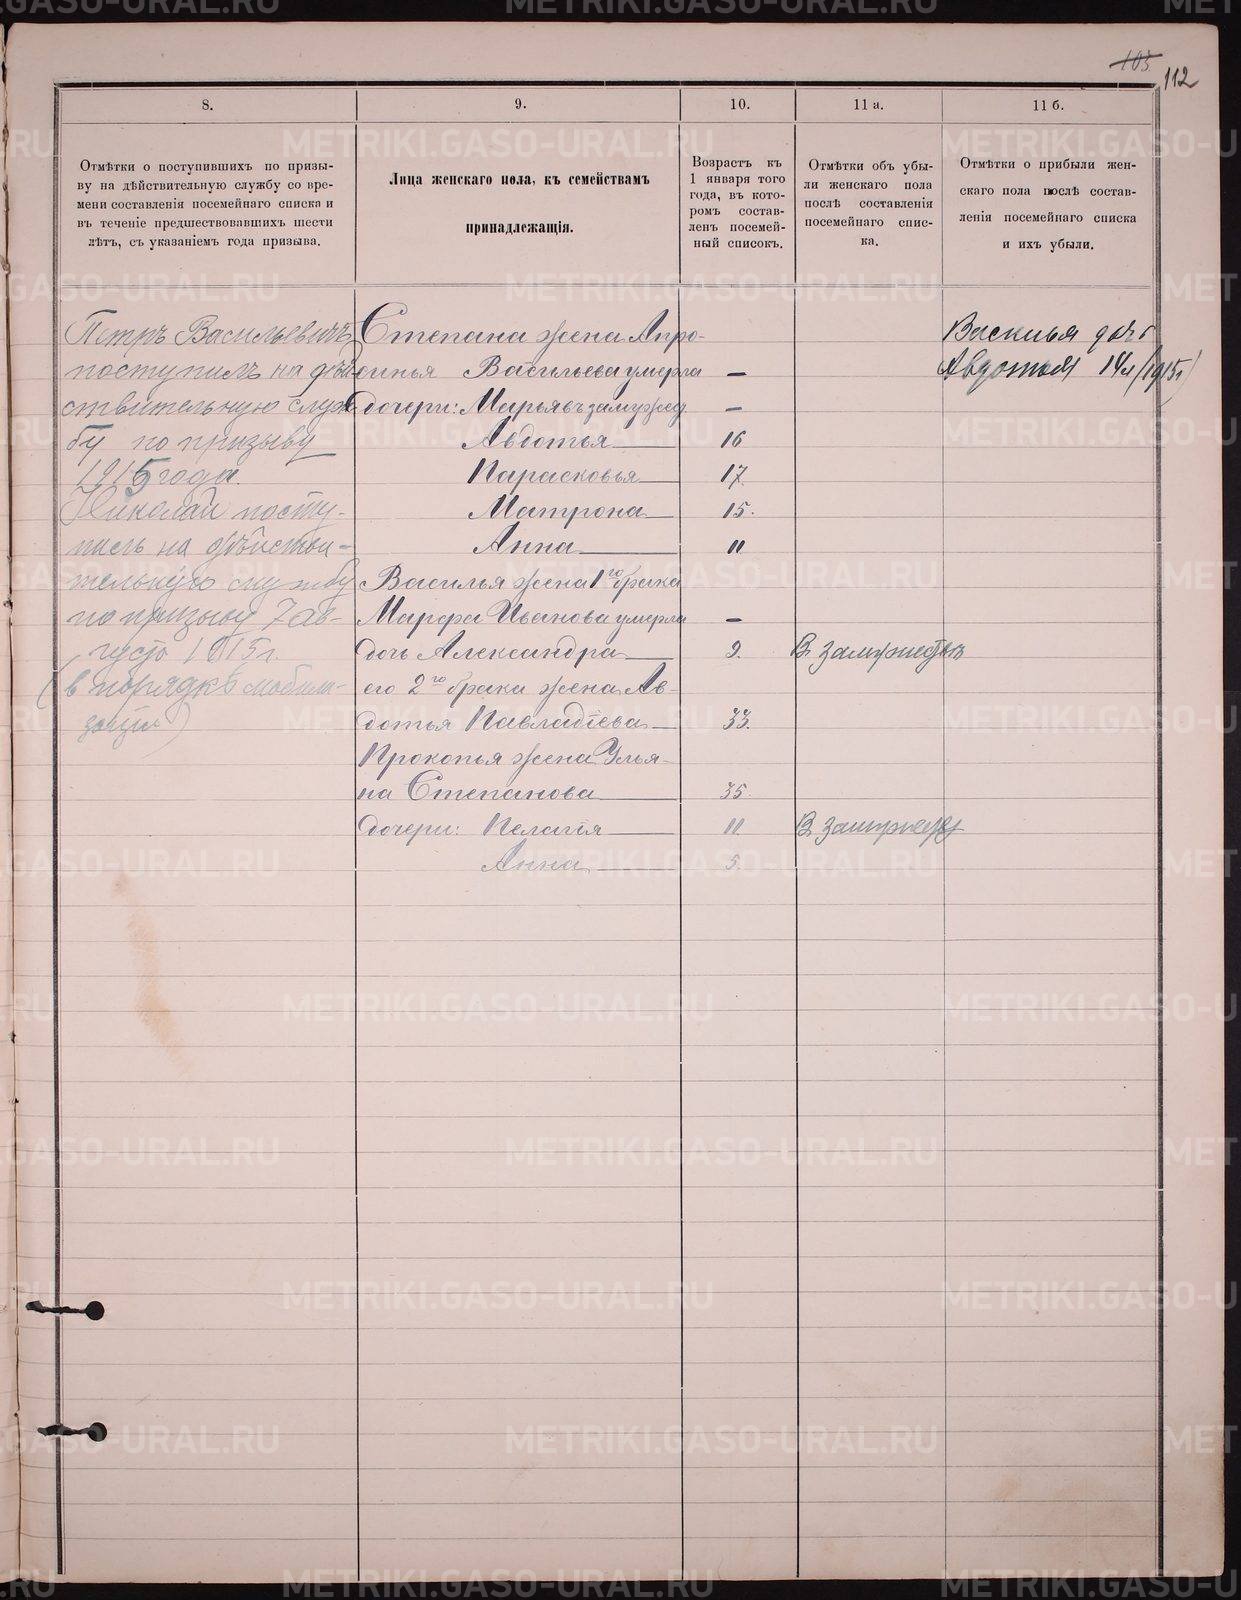 103
112
8.
9.
10.
11 а.
11 б.
Отмѣтки о поступившихъ по призы-
ву на дѣйствительную службу со вре-
мени составленія посемейнаго списка и
въ теченіе предшествовавшихъ шести
лѣтъ, съ указаніемъ года призыва.
Лица женскаго пола, къ семействамъ
принадлежащія.
Возрастъ къ
1 января того
года, въ кото-
ромъ состав-
ленъ посемей-
ный списокъ.
Отмѣтки объ убы-
ли женскаго пола
послѣ составленія
посемейнаго спис-
ка.
Отмѣтки о прибыли жен-
скаго пола послѣ состав-
ленія посемейнаго списка
и ихъ убыли.
Петръ Васильевичъ
поступилъ на дѣй
ствительную служ
бу по призыву
1915 года.
Николай посту-
пилъ на дѣйстви-
тельную службу
по призыву 7 ав-
густа 1915 г.
(в порядкѣ мобили-
зации)
Степана жена Апро-
синья Васильева умерла —
дочери: Марья въ замуже —
Авдотья 16
Парасковья 17.
Матрона 15.
Анна 11
Василья жена 1го брака
Марфа Иванова умерла —
дочь Александра 9. В замужеств
его 2го брака жена Ав-
дотья Павладіева 33.
Прокопья жена Улья-
на Степанова 35.
дочери: Пелагія 11. В замужест
Анна 5.
Василья дочь
Авдотья 14 л (1915 г)
METRIKI.GASO-URAL.RU